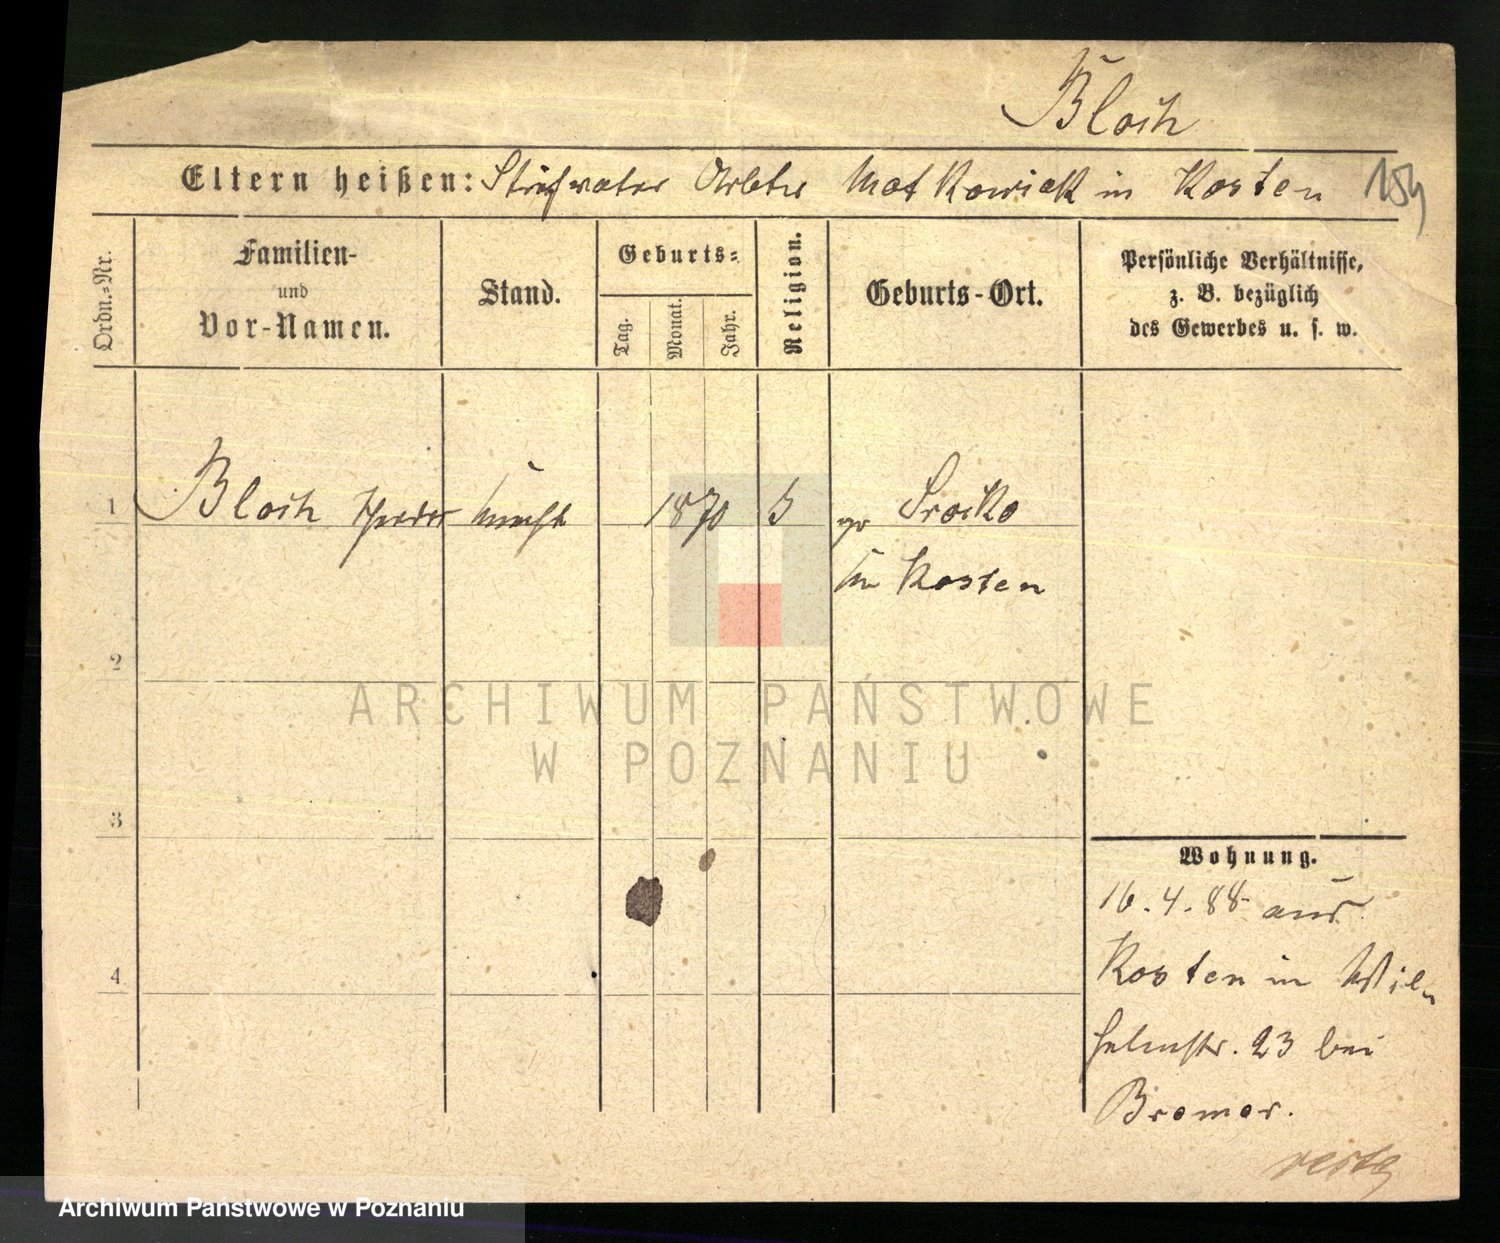 Bloch
Eltern heißen: Stiefvater Arbeiter Matkowiak in Kosten 154
Ordn.-Nr.
Familien-
und
Vor-Namen.
Stand.
Geburts-
Tag.
Monat.
Jahr.
Religion.
Geburts-Ort.
Persönliche Verhältnisse,
z. B. bezüglich
des Gewerbes u. s. w.
1 Bloch 1870 Srocko
Kr Kosten
2
3
4
Wohnung.
16.4.88 aus
Kosten in Wil-
helmstr. 23 bei
Bremer.
ARCHIWUM PAŃSTWOWE
W POZNANIU
Archiwum Państwowe w Poznaniu